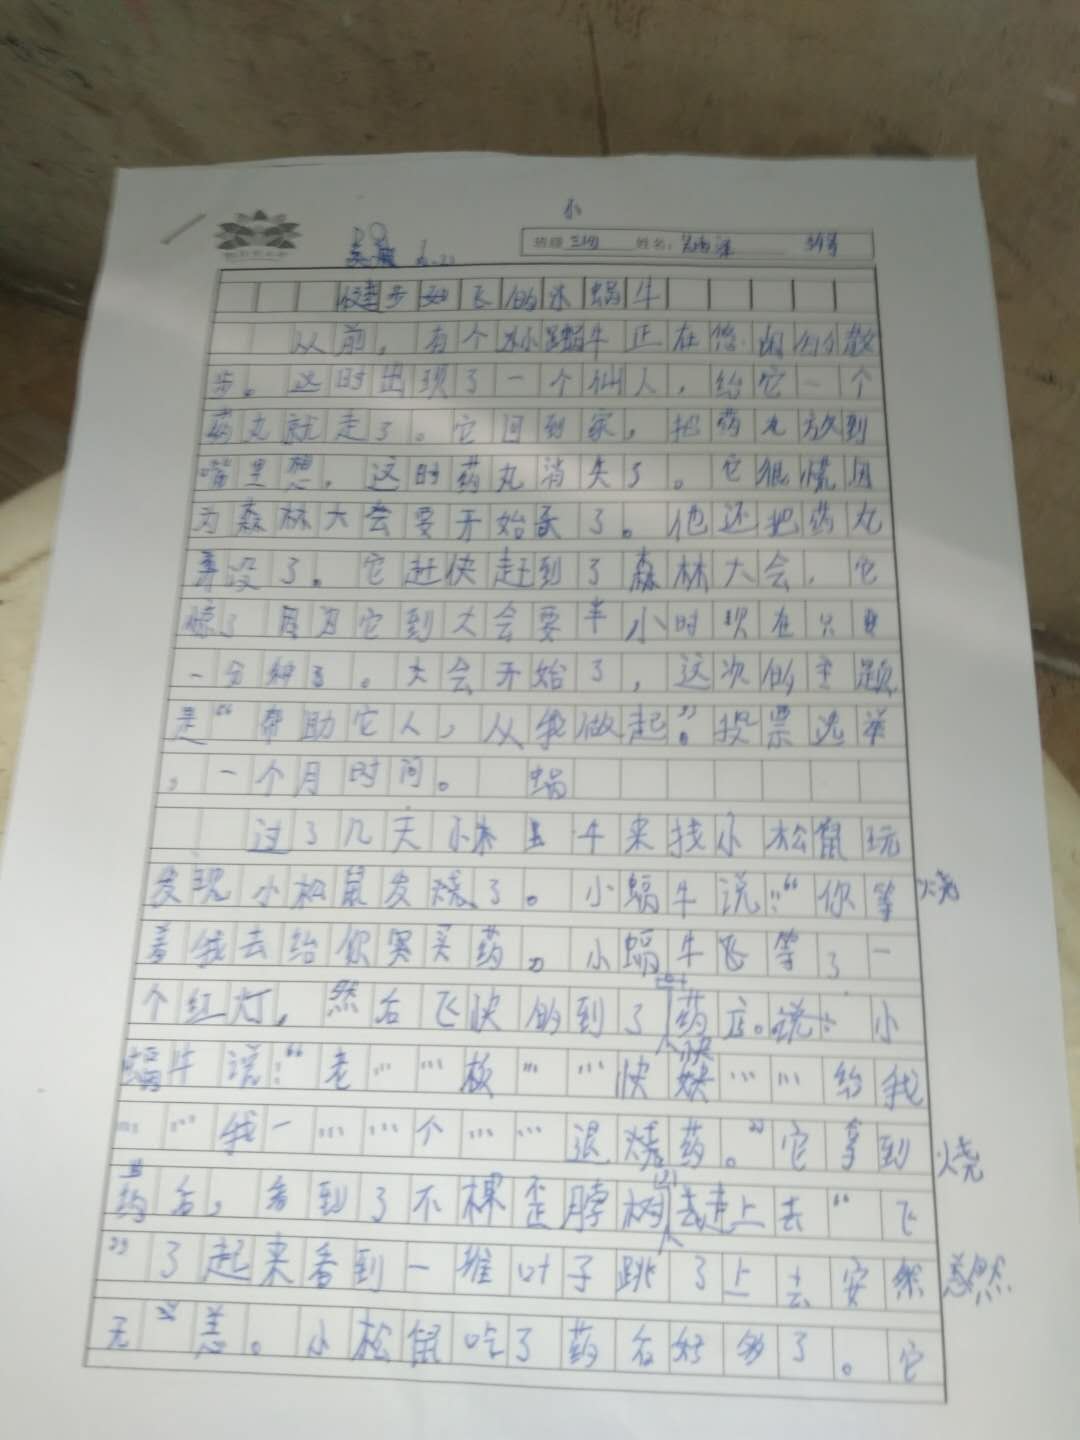 小
班级 三(4) 姓名:
健步如飞的小蜗牛
从前,有个小蜗牛正在悠闲的散
步。这时出现了一个仙人,给它一个
药丸就走了。它回到家,把药丸放到
嘴里想,这时药丸消失了。它很慌因
为森林大会要开始了。他还把药丸
弄没了。它赶快赶到了森林大会,它
惊了 因为它到大会要半小时现在只用
一分钟了。大会开始了,这次的主题
是“帮助它人,从我做起。”投票选举
,一个月时间。 蜗
过了几天小 牛来找小松鼠玩
发现小松鼠发烧了。小蜗牛说:“你等 烧
着我去给你买药。”小蜗牛飞等了一
个红灯,然后飞快的到了药店。说:小
蜗牛说:“老……板……快 快……给我
……我一……个……退烧药。”它拿到 烧
药后,看到了不棵歪脖树 走上去“飞
”了起来看到一堆叶子跳了上去安然 恙然
无恙。小松鼠吃了药后好多了。它